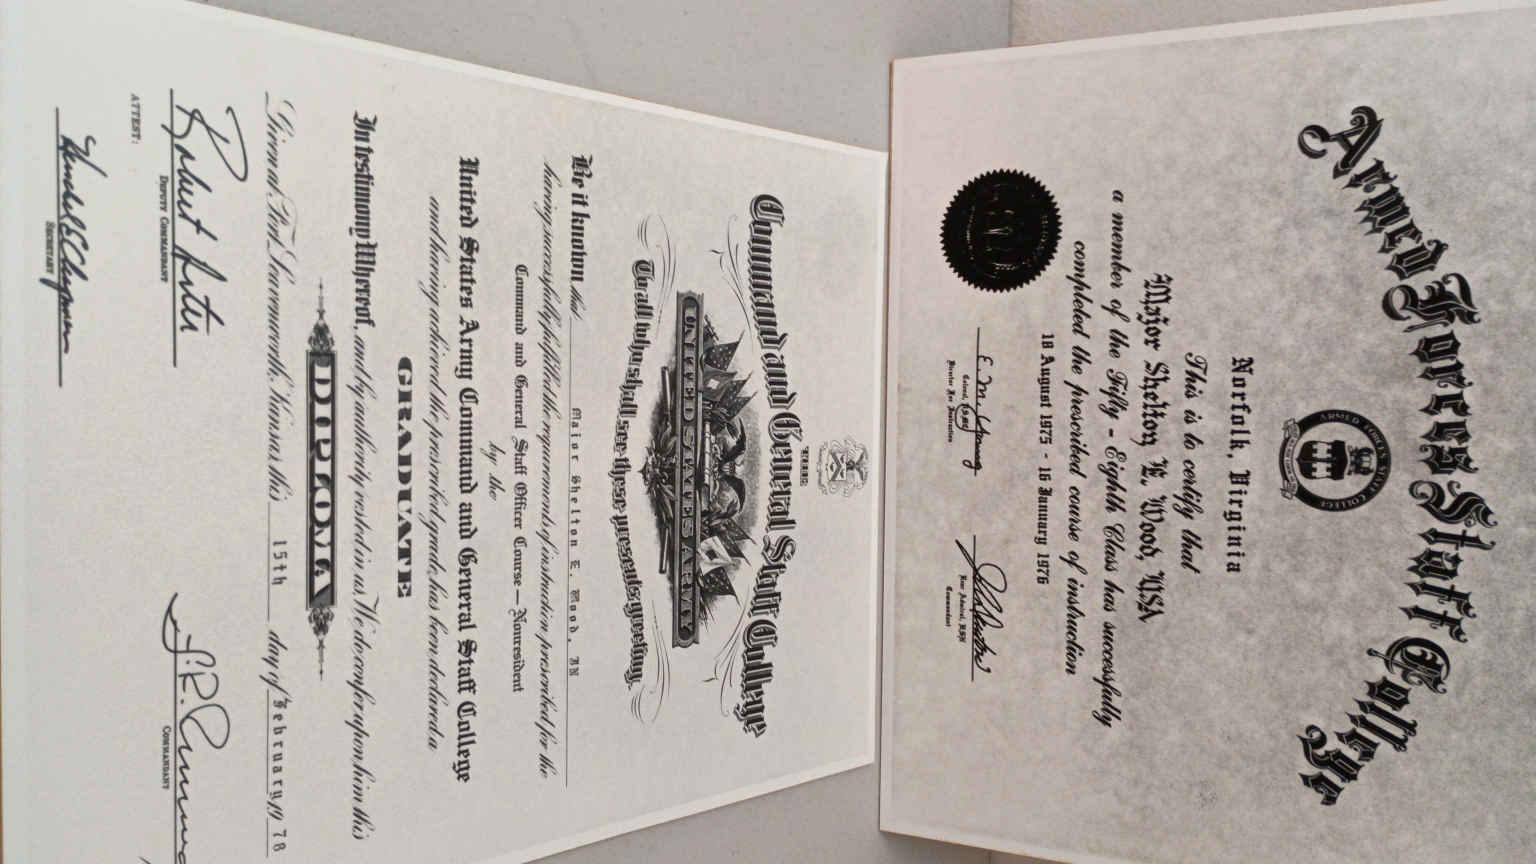 Armed Forces Staff College
ARMED FORCES STAFF COLLEGE
Norfolk, Virginia
This is to certify that
Major Shelton E. Wood, USA
a member of the Fifty - Eighth Class has successfully
completed the prescribed course of instruction
18 August 1975 - 16 January 1976
Rear Admiral, USN
Commandant
THE
Command and General Staff College
UNITED STATES ARMY
To all who shall see these presents, greeting,
Be it known that Major Shelton E. Wood, IN
having successfully fulfilled the requirements of instruction prescribed for the
Command and General Staff Officer Course — Nonresident
by the
United States Army Command and General Staff College
and having achieved the prescribed grade, has been declared a
GRADUATE
In testimony Whereof, and by authority vested in us, We do confer upon him this
DIPLOMA
Given at Fort Leavenworth, Kansas this 15th day of February, 19 78
Robert Arter
DEPUTY COMMANDANT
COMMANDANT
ATTEST:
SECRETARY